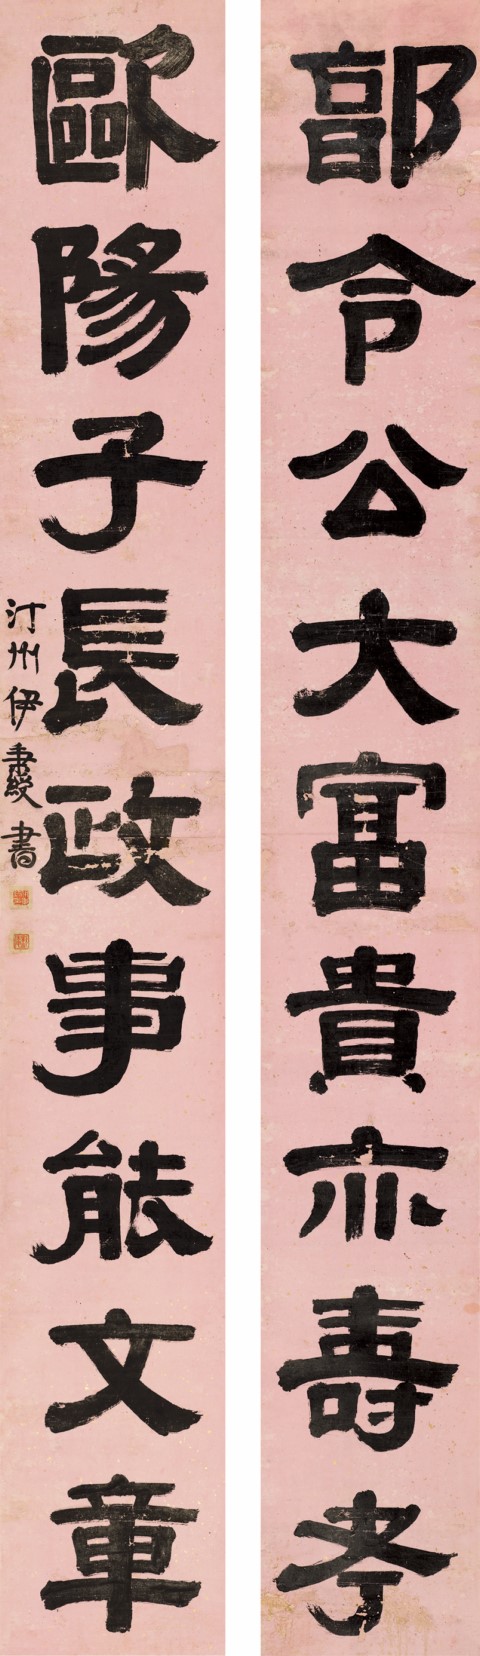 郭令公大富貴亦壽考
歐陽子長政事能文章
汀州伊秉綬書